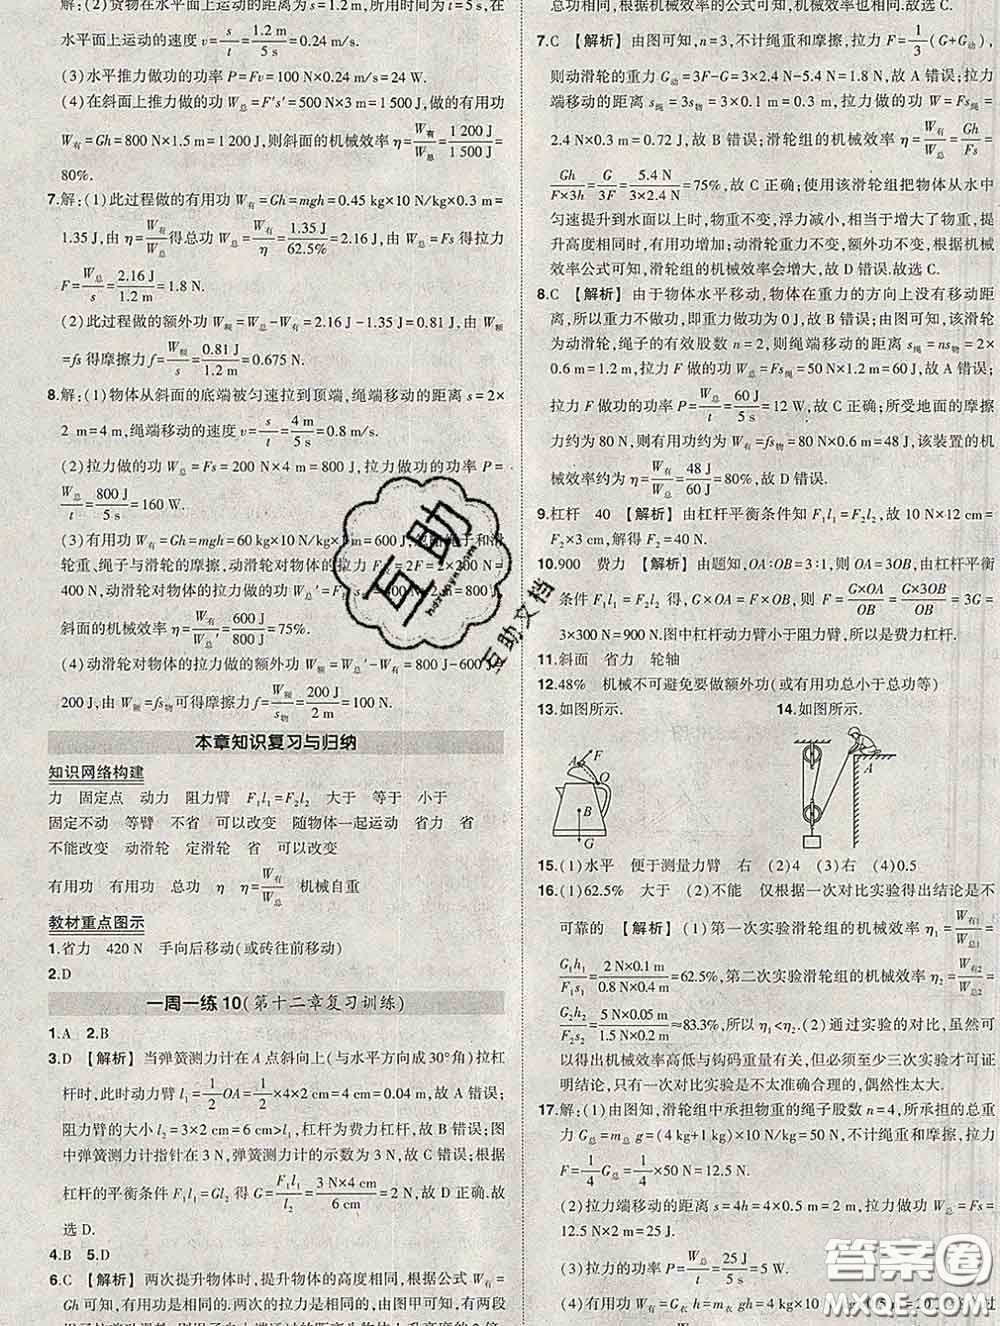 解:(2)货物在水平面上运动的距离s=1.2 m,所用时间t=5 s,在
水平面上运动的速度v=s/t=1.2 m/5 s=0.24 m/s.
(3)水平推力做功的功率P=Fv=100 N×0.24 m/s=24 W.
(4)在斜面上推力做的功W总=F's'=500 N×3 m=1 500 J,做的有用功
W有=Gh=800 N×1.5 m=1 200 J,则斜面的机械效率η=W有/W总=1 200 J/1 500 J=
80%.
7.解:(1)此过程做的有用功W有=Gh=mgh=0.45 kg×10 N/kg×0.3 m=
1.35 J,由η=W有/W总得总功W总=W有/η=1.35 J/62.5%=2.16 J,由W总=Fs得拉力
F=W总/s=2.16 J/1.2 m=1.8 N.
(2)此过程做的额外功W额=W总-W有=2.16 J-1.35 J=0.81 J,由W额
=fs得摩擦力f=W额/s=0.81 J/1.2 m=0.675 N.
8.解:(1)物体从斜面的底端被匀速拉到顶端,绳端移动的距离s=2×
2 m=4 m,绳端移动的速度v=s/t=4 m/5 s=0.8 m/s.
(2)拉力做的功W总=Fs=200 N×4 m=800 J,拉力做功的功率P=
W总/t=800 J/5 s=160 W.
(3)有用功W有=Gh=mgh=60 kg×10 N/kg×1 m=600 J,
轮重、绳子与滑轮的摩擦,动滑轮对物体的拉力F拉=2F=2×200 N=
400 N,动滑轮对物体的拉力做的总功
斜面的机械效率η=W有/W总'=600 J/800 J=75%.
(4)动滑轮对物体的拉力做的额外功W额=W总'-W有=800 J-600 J=
200 J,由W额=fs物得摩擦力f=W额/s物=200 J/2 m=100 N.
本章知识复习与归纳
知识网络构建
力 固定点 动力 阻力臂 F₁l₁=F₂l₂ 大于 等于 小于
固定不动 等臂 不省 可以改变 随物体一起运动 省力 省
不能改变 动滑轮 定滑轮 省 可以改变
有用功 有用功 总功 η=W有/W总 机械自重
教材重点图示
1.省力 420 N 手向后移动(或砖往前移动)
2.D
一周一练10(第十二章复习训练)
1.A 2.B
3.D 【解析】当弹簧测力计在A点斜向上(与水平方向成30°角)拉杠
杆时,此时动力臂l₁=1/2OA=1/2×4×2 cm=4 cm=0.04 m,故A错误;
阻力臂的大小l₂=3×2 cm=6 cm>l₁,杠杆为费力杠杆,故B错误;图
中弹簧测力计指针在3 N,弹簧测力计的示数为3 N,故C错误;根据
杠杆的平衡条件F₁l₁=Gl₂得G=F₁l₁/l₂=3 N×4 cm/6 cm=2 N,故D正确.故
选D.
4.B 5.D
6.C 【解析】两次提升物体时,提升物体的高度相同,根据公式W有=
Gh可知,有用功是相同的.两次的拉力是相同的,由图甲可知,有两段
总功相同,根据机械效率的公式可知,机械效率也相同.故选C.
7.C 【解析】由图可知,n=3,不计绳重和摩擦,拉力F=1/3(G+G动),
则动滑轮的重力G动=3F-G=3×2.4 N-5.4 N=1.8 N,故A错误;拉力
端移动的距离s绳=3s物=3×0.1 m=0.3 m,拉力做的功W=Fs绳=
2.4 N×0.3 m=0.72 J,故B错误;滑轮组的机械效率η=W有/W总=Gh/Fs=
Gh/F×3h=G/3F=5.4 N/3×2.4 N=75%,故C正确;使用该滑轮组把物体从水中
匀速提升到水面以上时,物重不变,浮力减小,相当于增大了物重,提
升高度相同时,有用功增加;动滑轮重力不变,额外功不变,根据机械
效率公式可知,滑轮组的机械效率会增大,故D错误.故选C.
8.C 【解析】由于物体水平移动,物体在重力的方向上没有移动距
离,所以重力不做功,即重力做功为0 J,故B错误;由图可知,该滑轮
为动滑轮,绳子的有效股数n=2,则绳端移动距离s绳=ns物=2×
0.6 m=1.2 m,拉力F做的功W总=Fs绳=50 N×1.2 m=60 J,故A错误;
拉力F做功的功率P=W总/t=60 J/5 s=12 W,故C正确;所受地面的摩擦
力约为80 N,则有用功约为W有=fs物=80 N×0.6 m=48 J,该装置的机
械效率约为η=W有/W总=48 J/60 J=80%,故D错误.
9.杠杆 40 【解析】由杠杆平衡条件知F₁l₁=F₂l₂,故10 N×12 cm=
F₂×3 cm,解得F₂=40 N.
10.900 费力 【解析】由题知,OA:OB=3:1,则OA=3OB,由杠杆平衡
条件F₁l₁=F₂l₂得,G×OA=F×OB,则F=G×OA/OB=G×3OB/OB=3G=
3×300 N=900 N.图中杠杆动力臂小于阻力臂,所以是费力杠杆.
11.斜面 省力 轮轴
12.48% 机械不可避免要做额外功(或有用功总小于总功等)
13.如图所示. 14.如图所示.
A F O B G
A
15.(1)水平 便于测量力臂 右 (2)4 (3)右 (4)0.5
16.(1)62.5% 大于 (2)不能 仅根据一次对比实验得出结论是不
可靠的 【解析】(1)第一次实验滑轮组的机械效率η₁=W有1/W总1=
G₁h₁/F₁s₁=2 N×0.1 m/0.8 N×0.4 m=62.5%,第二次实验滑轮组的机械效率η₂=W有2/W总2=
G₂h₂/F₂s₂=5 N×0.05 m/1.5 N×0.2 m≈83.3%,所以η₁<η₂.(2)通过实验的对比,虽然可
以得出机械效率高低与钩码重量有关,但必须至少三次实验才可证
明结论,只有一次对比实验是不太准确合理的,偶然性太大.
17.解:(1)由图知,滑轮组中承担物重的绳子股数n=4,所承担的总重
力G总=m总g=(4 kg+1 kg)×10 N/kg=50 N,不计绳重和摩擦,拉力
F=1/4G总=1/4×50 N=12.5 N.
(2)拉力端移动的距离s=4h=4×0.5 m=2 m,拉力做功W总=Fs=
12.5 N×2 m=25 J.
(3)拉力做功的功率P=W总/t=25 J/5 s=5 W.
(4)有用功W有=G衣h=m衣gh=
互助
hdzuoye.com
互助文档
答案圈
MXQE.COM